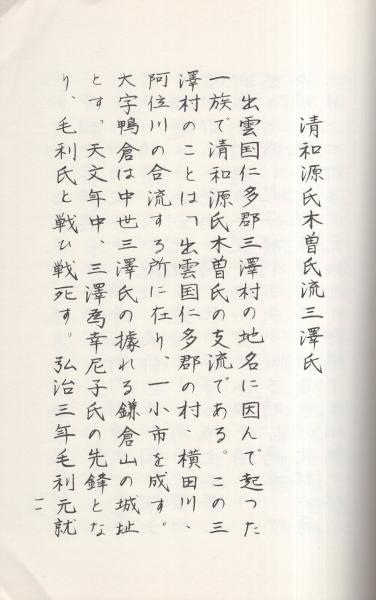 清和源氏木曽氏流三澤氏
出雲国仁多郡三澤村の地名に因んで起った
一族で清和源氏木曽氏の支流である。この三
澤村のことは「出雲国仁多郡の村、横田川、
阿位川の合流する所に在り、一小市を成す。
大字鴨倉は中世三澤氏の據れる鎌倉山の城址
とす。天文年中、三澤為幸尼子氏の先鋒とな
り、毛利氏と戦ひ戦死す。弘治三年毛利元就
一一